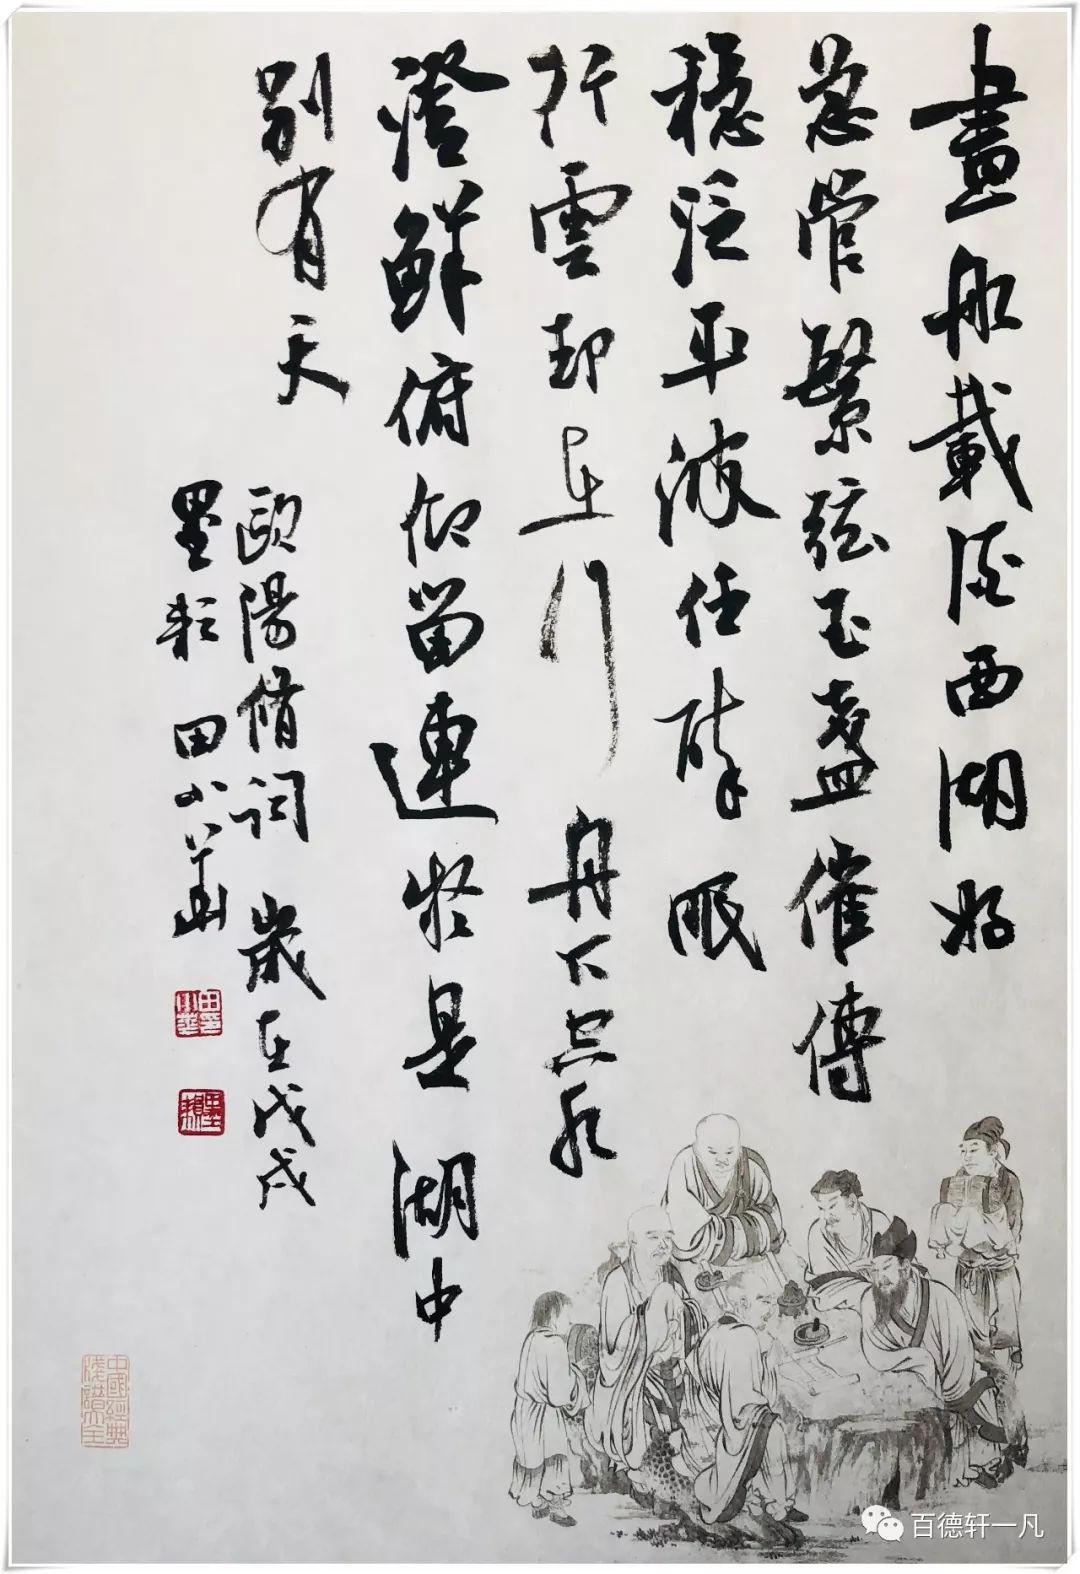 畫船載酒西湖好
急管繁弦玉盞催傳
穩泛平波任醉眠
行雲却在行舟下空水
澄鮮俯仰留連疑是湖中
別有天
歐陽脩詞 歲在戊戌
墨 田小華
田小華印
中國經典
百德轩一凡